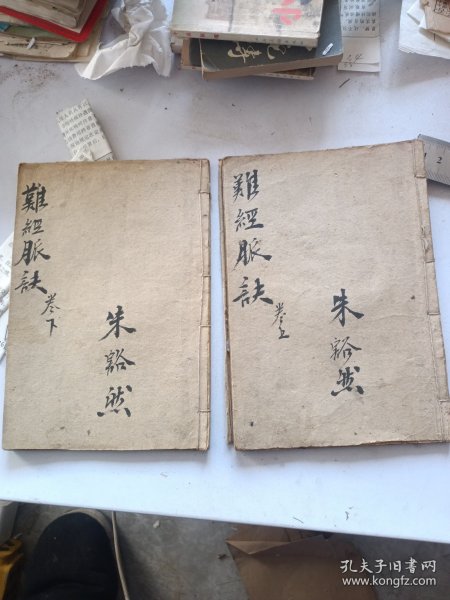 難經脈訣
卷下
朱豁然
難經脈訣
卷上
朱豁然
孔夫子旧书网
www.kongfz.com